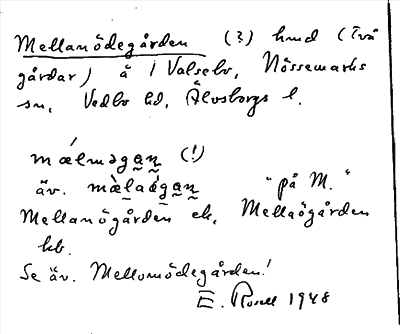 Mellanödegården (?) hmd (Två
gårdar) å 1 Valselv, Nössemarks
sn, Vedbo hd, Älvsborgs l.
mǽlməga̰ṇ (!)
äv. mæ̀laǿga̰ṇ "på M."
Mellanögården el. Mellaögården
kb.
Se äv. Mellomödegården!
E. Rosell 1948